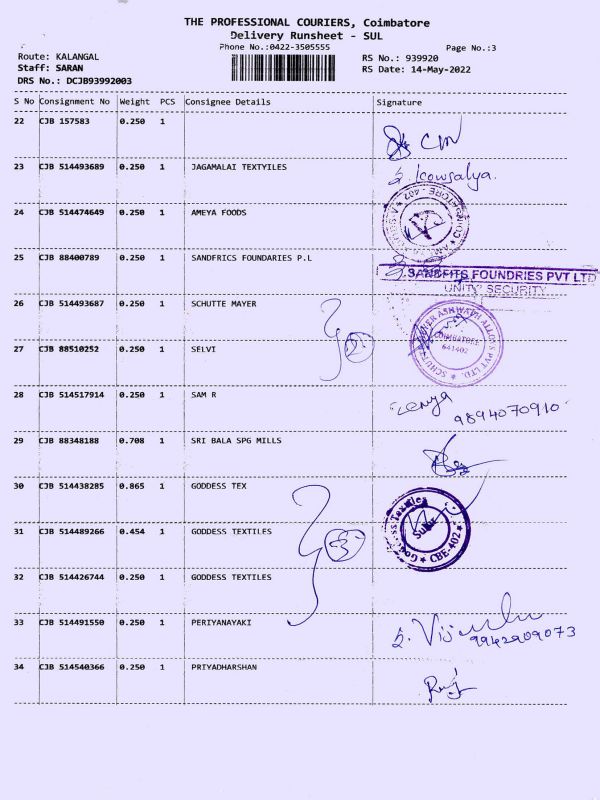 THE PROFESSIONAL COURIERS, Coimbatore
Delivery Runsheet - SUL
Phone No.:0422-3505555
Page No.:3
Route: KALANGAL
RS No.: 939920
Staff: SARAN
RS Date: 14-May-2022
DRS No.: DCJB93992003
S No Consignment No Weight PCS Consignee Details Signature
22 CJB 157583 0.250 1
23 CJB 514493689 0.250 1 JAGAMALAI TEXTYILES
Kowsalya.
24 CJB 514474649 0.250 1 AMEYA FOODS
25 CJB 88400789 0.250 1 SANDFRICS FOUNDARIES P.L
SANDFITS FOUNDRIES PVT LTD
UNITY SECURITY
26 CJB 514493687 0.250 1 SCHUTTE MAYER
COIMBATORE
641402
27 CJB 88510252 0.250 1 SELVI
28 CJB 514517914 0.250 1 SAM R
9894070910
29 CJB 88348188 0.708 1 SRI BALA SPG MILLS
30 CJB 514438285 0.865 1 GODDESS TEX
Goddess Textiles
Sulur
CBE-402
31 CJB 514489266 0.454 1 GODDESS TEXTILES
32 CJB 514426744 0.250 1 GODDESS TEXTILES
33 CJB 514491550 0.250 1 PERIYANAYAKI
9942909073
34 CJB 514540366 0.250 1 PRIYADHARSHAN